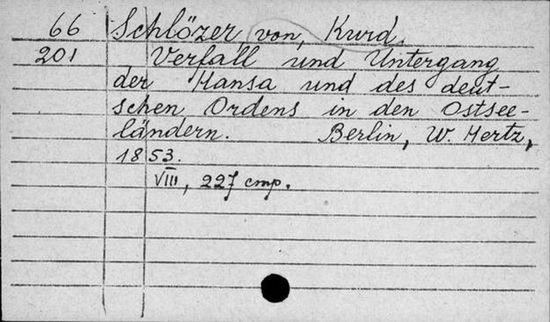 66 Schlözer, von, Kurd.
201 Verfall und Untergang
der Hansa und des deut-
schen Ordens in den Ostsee-
ländern. Berlin, W. Hertz,
1853.
VIII, 227 стр.